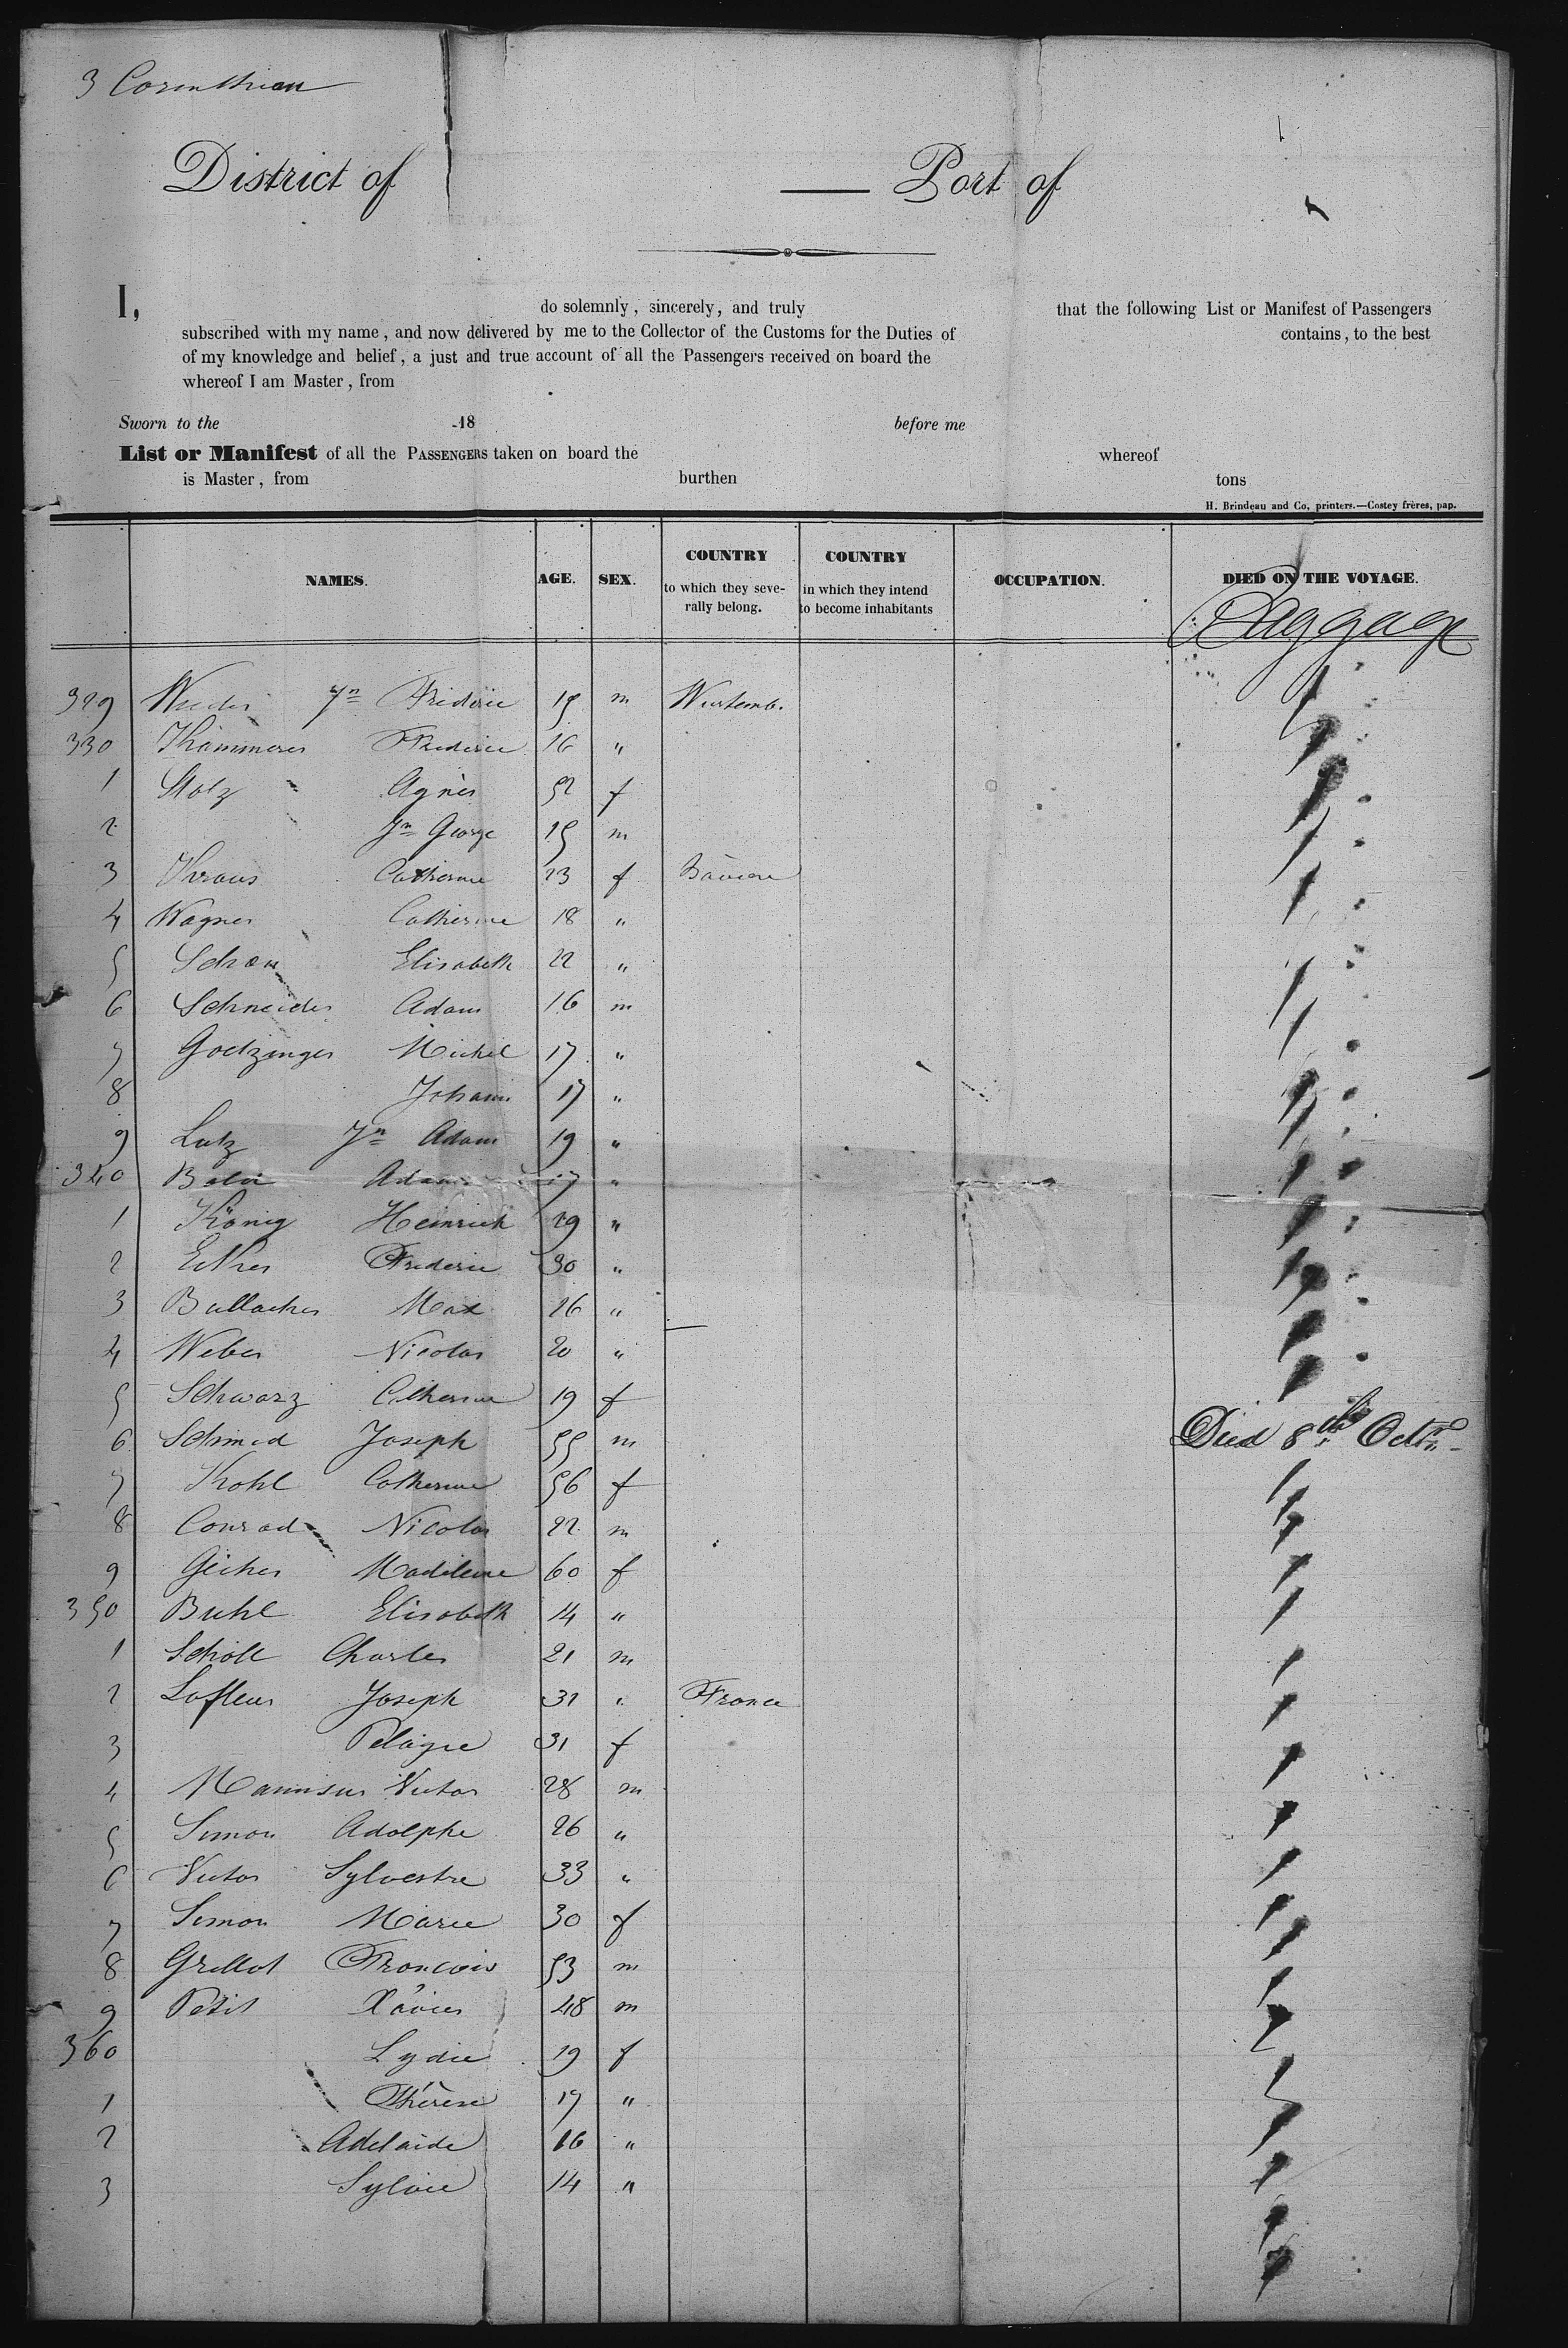 3 Corinthian
District of — Port of
I, do solemnly, sincerely, and truly that the following List or Manifest of Passengers
subscribed with my name, and now delivered by me to the Collector of the Customs for the Duties of contains, to the best
of my knowledge and belief, a just and true account of all the Passengers received on board the
whereof I am Master, from
Sworn to the 18 before me
List or Manifest of all the PASSENGERS taken on board the whereof
is Master, from burthen tons
H. Brindeau and Co, printers.—Costey frères, pap.
NAMES. AGE. SEX. COUNTRY to which they severally belong. COUNTRY in which they intend to become inhabitants OCCUPATION. DIED ON THE VOYAGE.
Baggage
329 Jn Frideric 15 m Wurtemb.
330 Kammerer Frederic 16 "
1 Stolz Agnès 52 f
2 Jn George 15 m
3 Kraus Catherine 23 f Bavière
4 Wagner Catherine 18 "
5 Schon Elisabeth 22 "
6 Schneider Adam 16 m
7 Goetzinger Michel 17 "
8 Johann 17 "
9 Lutz Jn Adam 19 "
340 Adam 17 "
1 König Heinrich 29 "
2 Frederic 30 "
3 Bullacher Max 26 "
4 Weber Nicolas 20 "
5 Schwarz Catherine 19 f
6 Schmid Joseph 55 m Died 8th Octr
7 Kohl Catherine 56 f
8 Conrad Nicolas 22 m
9 Madeleine 60 f
350 Buhl Elisabeth 14 "
1 Scholl Charles 21 m
2 Lafleur Joseph 31 " France
3 Pelagie 31 f
4 Victor 28 m
5 Simon Adolphe 26 "
6 Victor Sylvestre 33 "
7 Simon Marie 30 f
8 Grillot Francois 53 m
9 Petit Xavier 48 m
360 Lydie 19 f
1 Thérèse 17 "
2 Adelaide 16 "
3 Sylvie 14 "